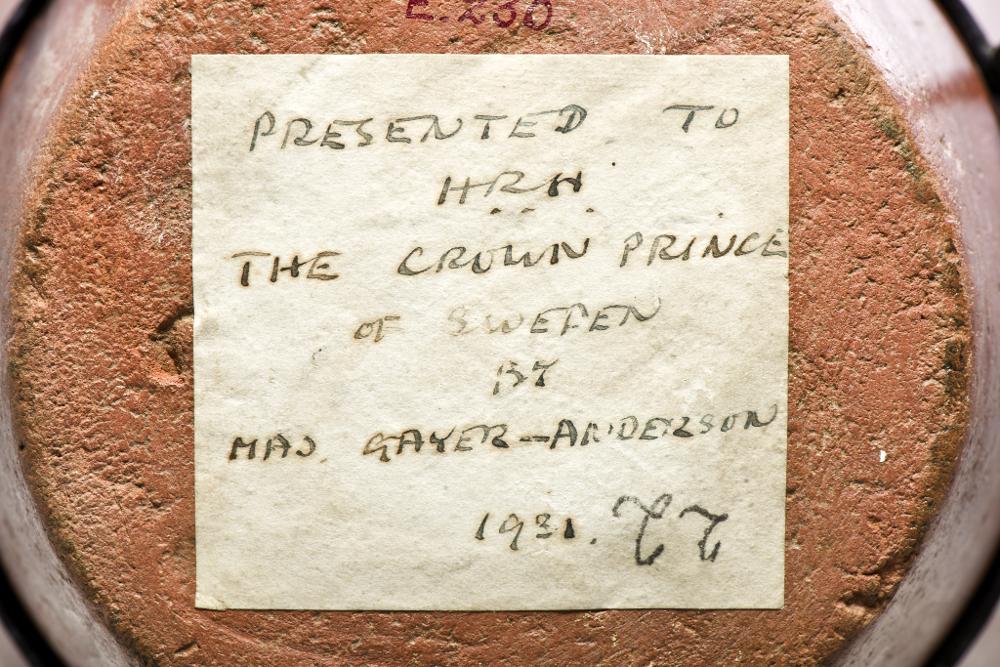 E.230
PRESENTED TO
HRH
THE CROWN PRINCE
OF SWEDEN
BY
MAJ. GAYER-ANDERSON
1931.